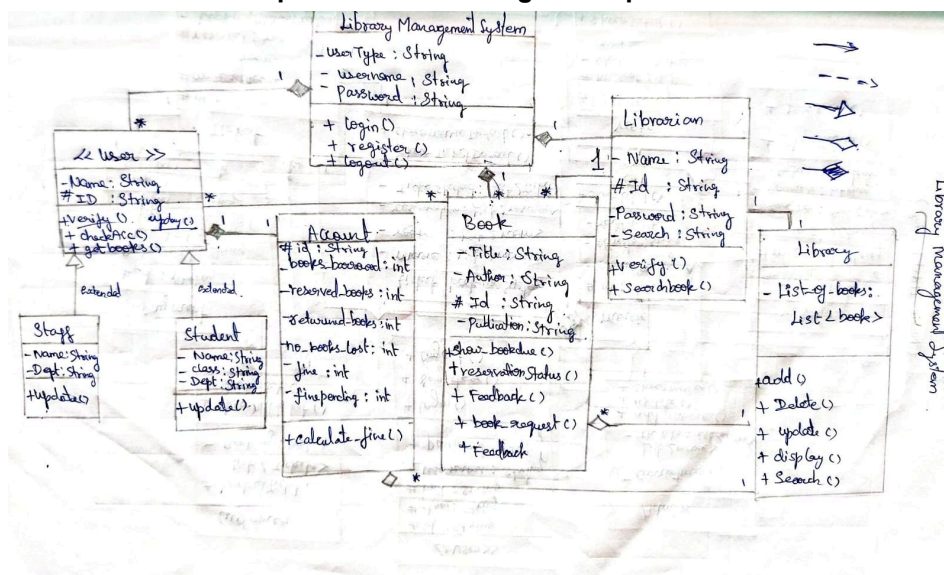 Library Management System
- userType : String
- username : String
- Password : String
+ login()
+ register()
+ logout()
1
*
1
1
1
<< User >>
- Name : String
# ID : String
+ Verify() update()
+ checkAcc()
+ getbooks()
*
1
1
extended
extended
Staff
- Name: String
- Dept: String
+ update()
Student
- Name: String
- class: String
- Dept: String
+ update()
Account
# id : String
- books_borrowed : int
- reserved_books : int
- returund_books : int
- no_books_lost : int
- fine : int
- finepending : int
+ calculate-fine()
*
*
*
Book
- Title : String
- Author : String
# Id : String
- Publication : String
+ show_bookdue()
+ reservationStatus()
+ Feedback()
+ book_request()
+ Feedback
*
Librarian
- Name : String
# Id : String
- Password : String
- Search : String
+ Verify()
+ Searchbook()
1
1
1
Library
- List_of_books:
List<book>
+ add()
+ Delete()
+ update()
+ display()
+ Search()
1
1
Library Management System.